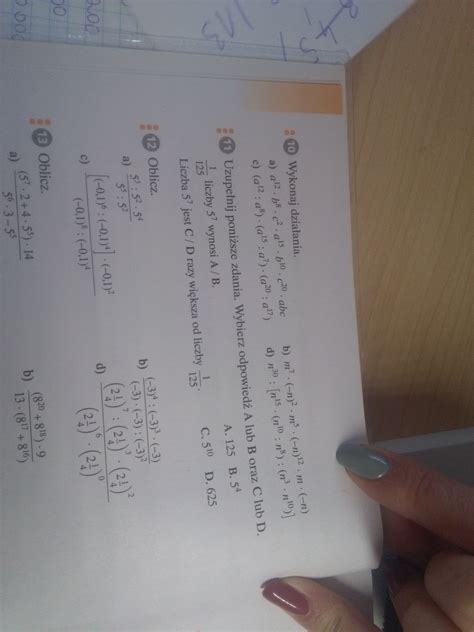 10 Wykonaj działania.
a) a¹² · b⁸ · c² · a¹⁵ · b¹⁰ · c²⁰ · abc b) m⁷ · (−n)² · m⁵ · (−n)¹² · m · (−n)
c) (a¹² : a⁸) · (a¹⁵ : a⁷) · (a²⁰ : a¹⁷) d) n³⁰ : [n¹⁵ · (n¹⁰ : n⁸) : (n³ · n¹⁰)]
11 Uzupełnij poniższe zdania. Wybierz odpowiedź A lub B oraz C lub D.
1/125 liczby 5⁷ wynosi A / B. A. 125 B. 5⁴
Liczba 5⁷ jest C / D razy większa od liczby 1/125. C. 5¹⁰ D. 625
12 Oblicz.
a) (5⁷ : 5² · 5⁴) / (5⁵ : 5²) b) ((−3)⁴ : (−3)³ · (−3)) / ((−3) · (−3) · (−3)²)
c) ([(−0,1)⁸ : (−0,1)⁴] · (−0,1)²) / ((−0,1)⁸ : (−0,1)⁴) d) ((2 1/4)⁷ : (2 1/4)³ · (2 1/4)²) / ((2 1/4)⁶ · (2 1/4)⁰)
13 Oblicz.
a) ((5⁷ · 2 + 4 · 5⁶) · 14) / (5⁶ · 3 − 5⁵) b) ((8²⁰ + 8¹⁸) · 9) / (13 · (8¹⁷ + 8¹⁶))